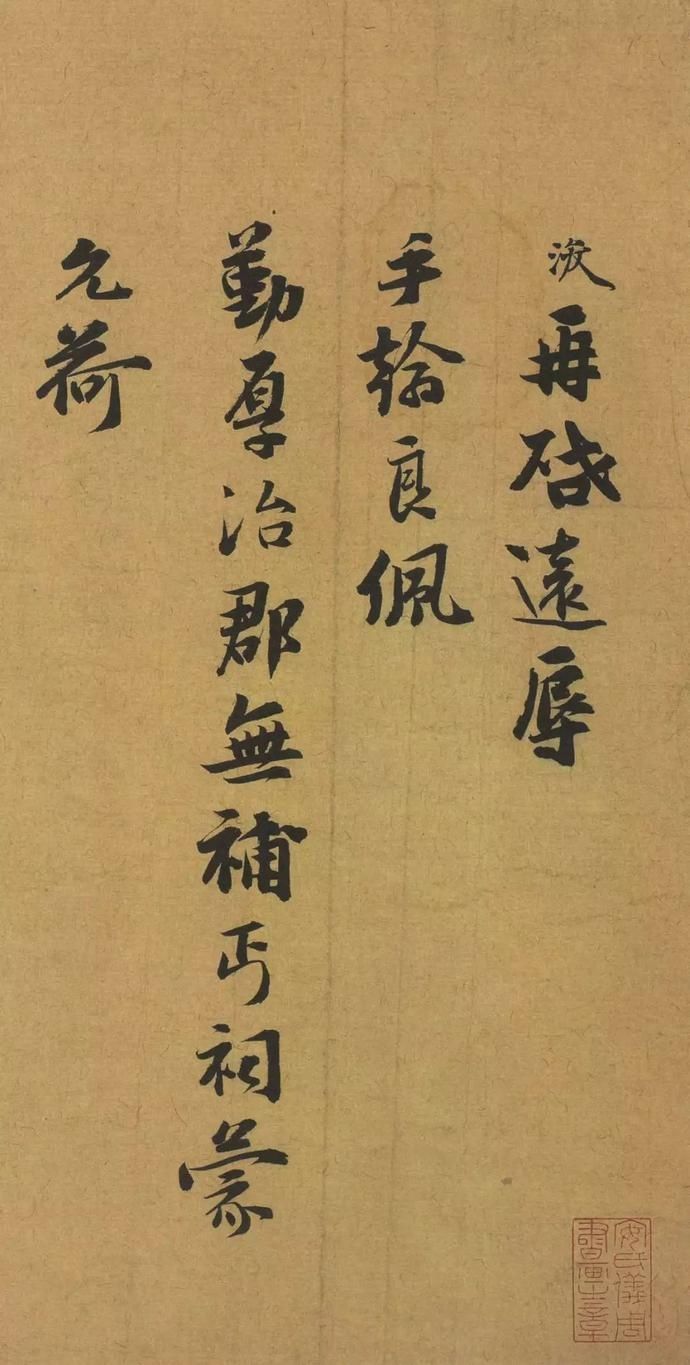 汲再啓遠辱
手翰良佩
勤厚治郡無補丐祠蒙
允荷
安氏儀周
書畫之章